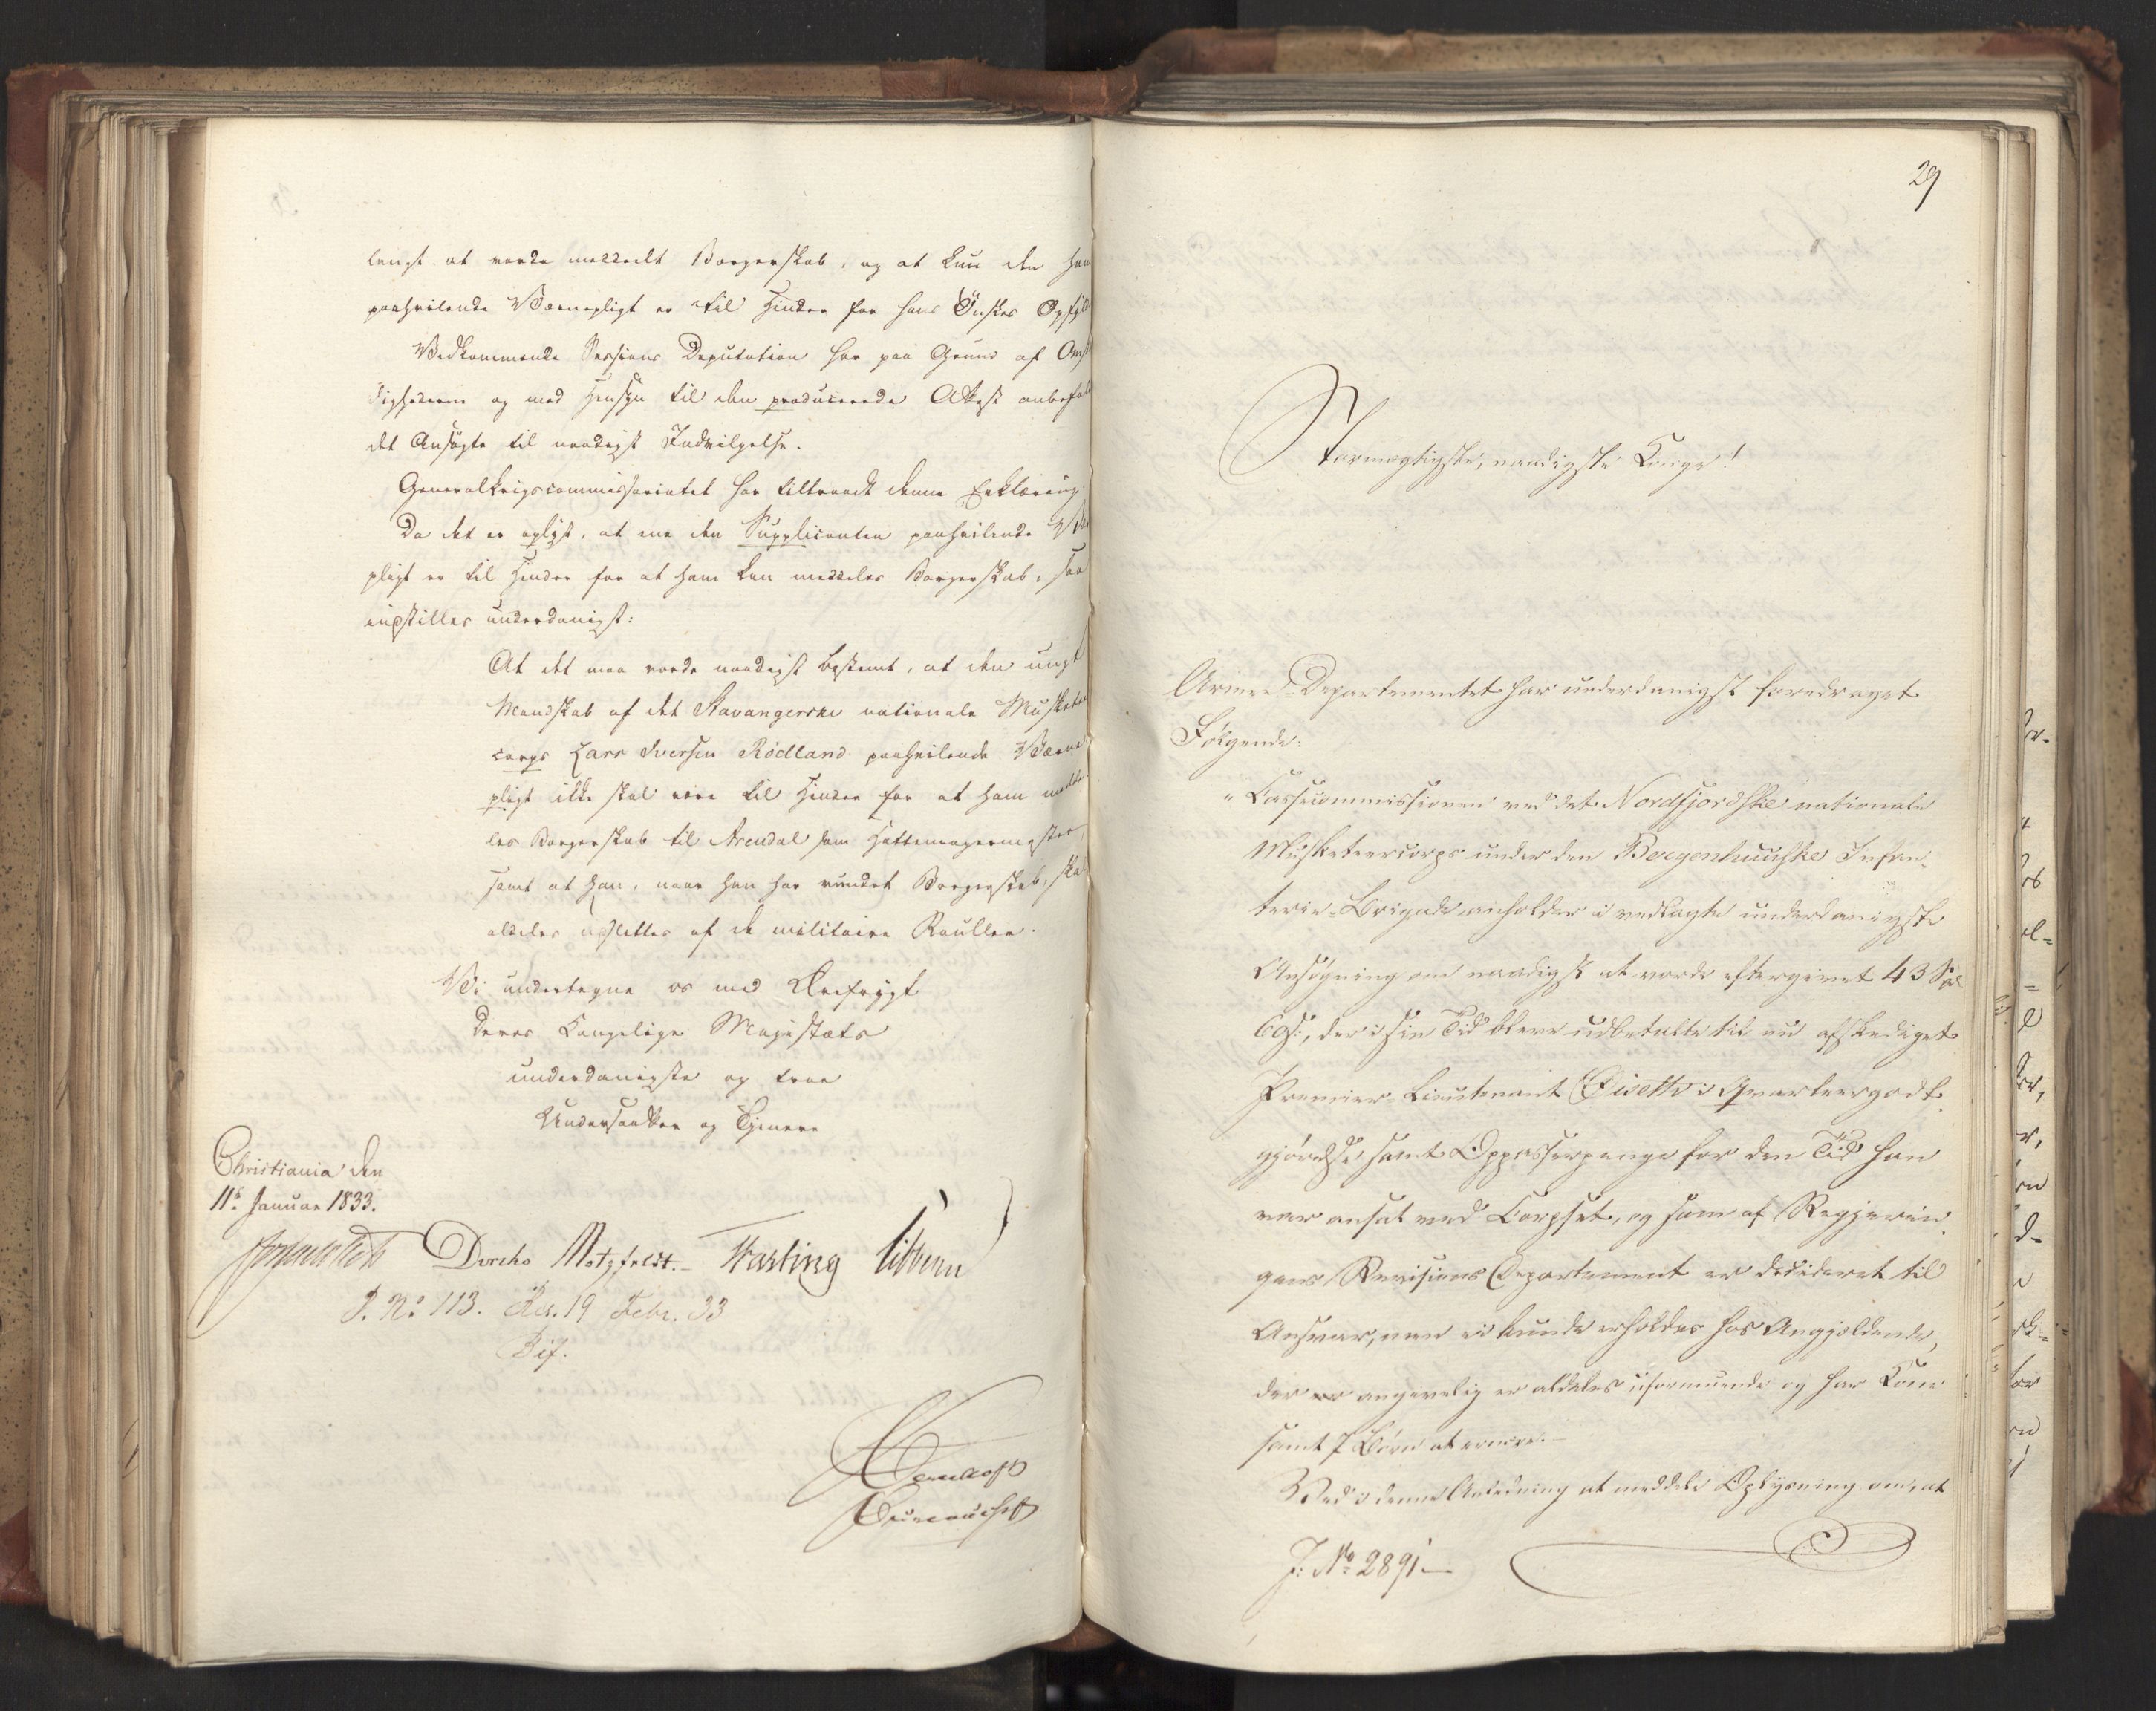 langt at vorde meddeelt Borgerskab, og at kun den ham
paahvilende Værnepligt er til Hinder for hans Önskes Opfyld
Vedkommende Sessions Deputation har paa Grund af Omst
dighederne og med Hensyn til den producerede Attest anbefalet
det Ansögte til naadigst Indvilgelse.
Generalkrigscommissariatet har tiltraadt denne Erklæring.
Da det er oplyst, at ene den Supplicanten paahvilende Værne
pligt er til Hinder for at ham kan meddeles Borgerskab, saa
indstilles underdanigst:
At det maa vorde naadigst bestemt, at den ungt
Mandskab af det Stavangerske nationale Musketeer
corps Lars Iversen Rödland paahvilende Værne
pligt ikke skal være til Hinder for at ham medde
les Borgerskab til Arendal som Hattemagermester,
samt at han, naar han har vundet Borgerskab, skal
aldeles udslettes af de militaire Rouller.
Vi undertegne os med Ærefrygt
Deres Kongelige Majestæts
underdanigste og troe
Undersaatter og Tjenere
Christiania den
11te Januar 1833.
Diriks Motzfeldt. Fasting Sibbern
J. No 113. Res. 19 Febr. 33
Bif.
29
Stormægtigste, naadigste Konge!
Armee-Departementet har underdanigst foredraget
Fölgende:
"Cassecommissionen ved det Nordfjordske nationale
Musketeercorps under den Bergenhuusske Infan-
terie-Brigade anholder i vedlagte underdanigste
Ansögning om naadigst at vorde eftergivet 43 Spd
69 s:, der i sin Tid bleve udbetalte til nu afskediget
Premier-Lieutenant i Qvarteergodt-
gjörelse samt Oppasserpenge for den Tid han
var ansat ved Corpset, og som af Regjerin-
gens Revisions Departement er decideret til
Ansvar, men ei kunde erholdes hos Angjeldende,
der angivelig er aldeles uformuende og har Kone
samt 7 Börn at ernære.—
Ved i denne Anledning at meddele Oplysning om, at
J: No 2891—